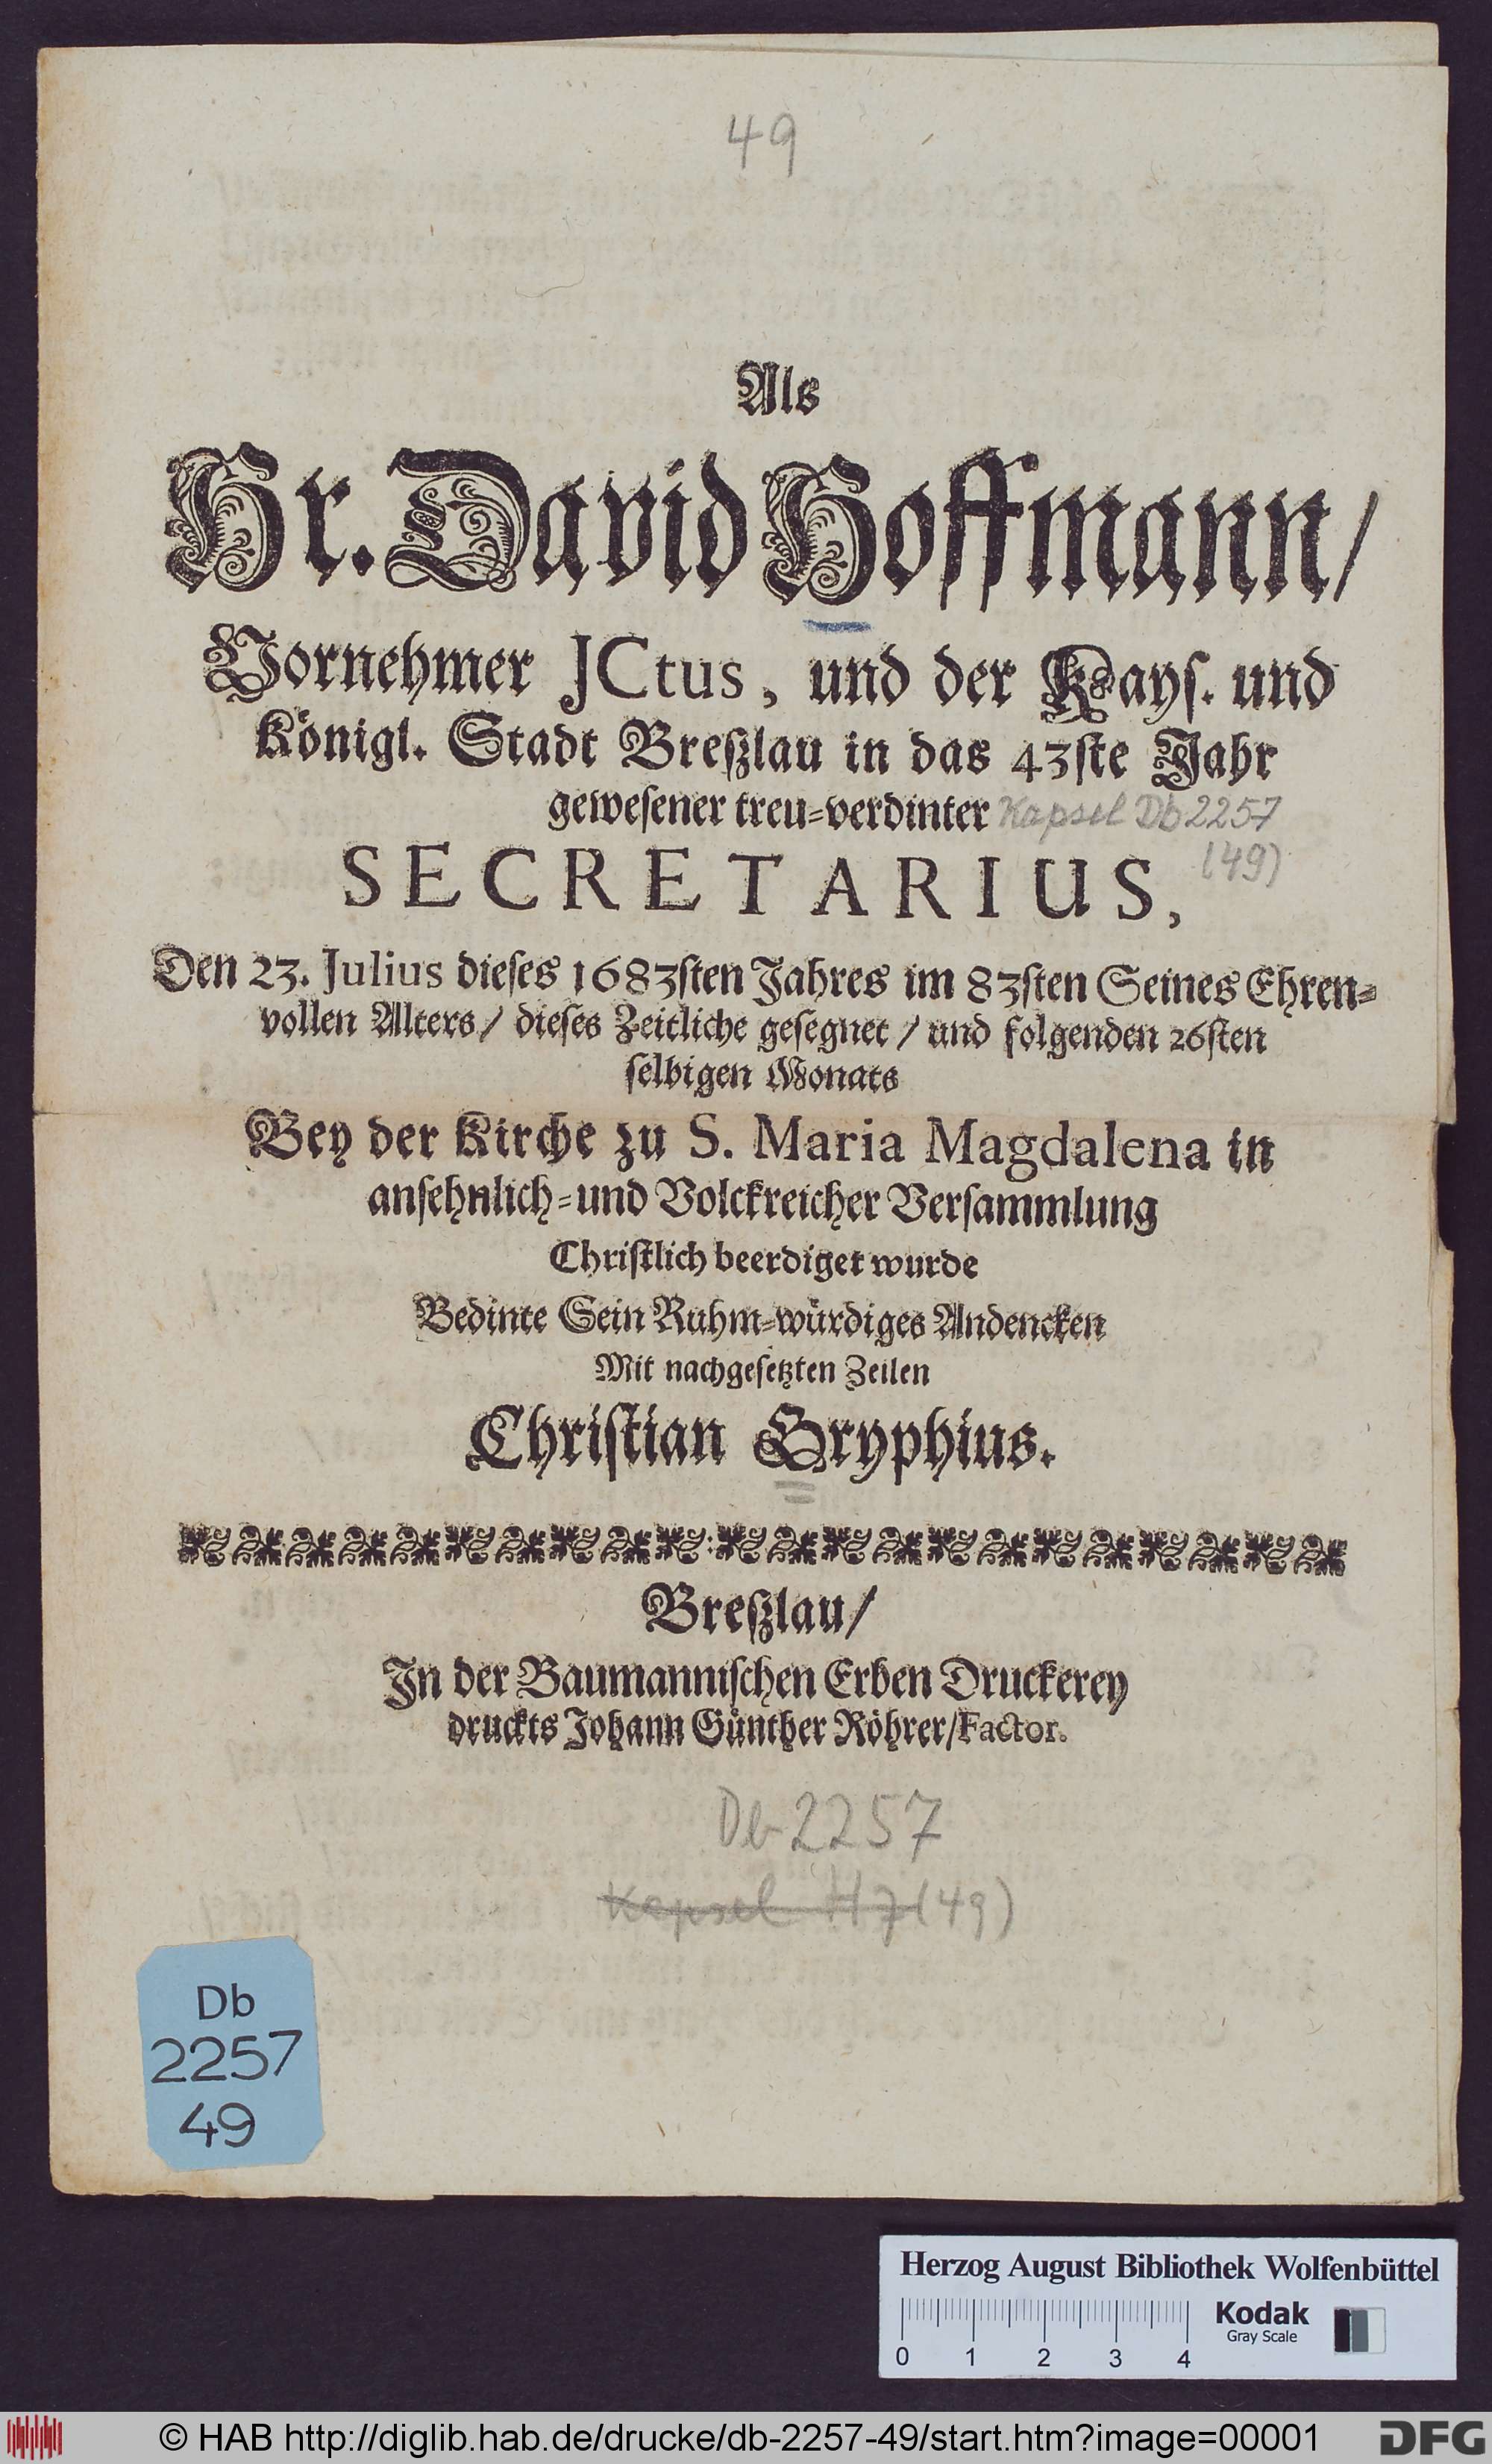 49
Als
Hr. David Hoffmann/
Vornehmer JCtus, und der Kayſ. und
Königl. Stadt Breßlau in das 43ſte Jahr
geweſener treu=verdinter Kapsel Db 2257
SECRETARIUS, (49)
Den 23. Julius dieſes 1683ſten Jahres im 83ſten Seines Ehren=
vollen Alters/ dieſes Zeitliche geſegnet/ und folgenden 26ſten
ſelbigen Monats
Bey der Kirche zu S. Maria Magdalena in
anſehnlich=und Volckreicher Verſammlung
Chriſtlich beerdiget wurde
Bedinte Sein Ruhm=würdiges Andencken
Mit nachgeſetzten Zeilen
Chriſtian Gryphius.
Breßlau/
In der Baumanniſchen Erben Druckerey
druckts Johann Günther Röhrer/Factor.
Db 2257
Kapsel H 7 (49)
Db
2257
49
Herzog August Bibliothek Wolfenbüttel
Kodak
Gray Scale
0 1 2 3 4
© HAB http://diglib.hab.de/drucke/db-2257-49/start.htm?image=00001
DFG